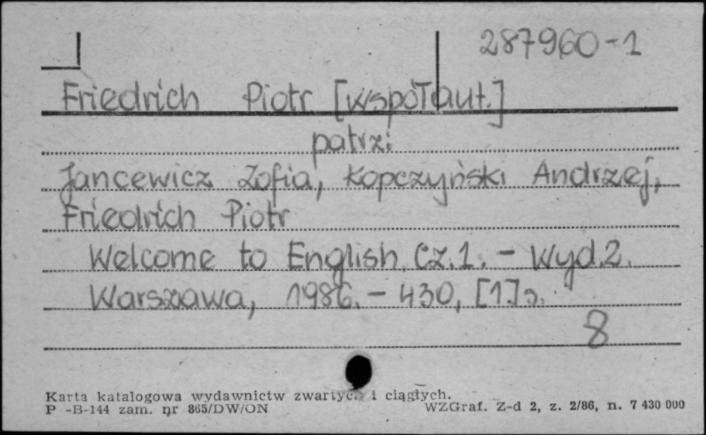 287960-1
Friedrich Piotr [współaut.]
patrz:
Jancewicz Zofia, Kopczyński Andrzej,
Friedrich Piotr
Welcome to English. Cz.1. - Wyd.2.
Warszawa, 1986. - 430, [1] s.
8
Karta katalogowa wydawnictw zwartych i ciągłych.
P -B-144 zam. nr 865/DW/ON WZGraf. Z-d 2, z. 2/86, n. 7 430 000